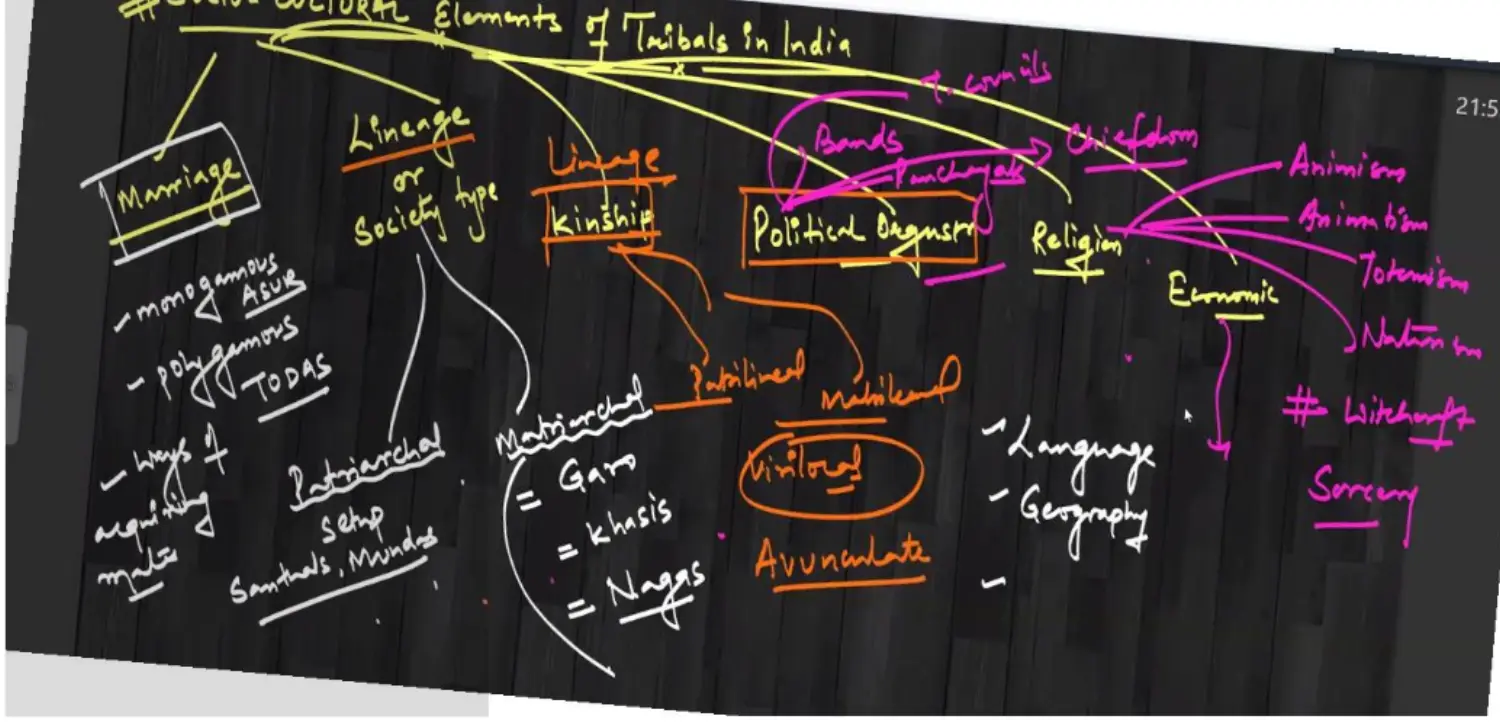 CULTURAL Elements of Tribals in India
21:5
Marriage
- monogamous
ASUR
- polygamous
TODAS
- ways of
acquiring
mate
Lineage
or
Society type
Patriarchal
setup
Santhals, Mundas
Matriarchal
= Garo
= Khasis
= Nagas
Lineage
Kinship
Patrilineal
Matrilineal
Virilocal
Avunculate
T. councils
Bands
Panchayats
Chiefdom
Political
Religion
Animism
Animatism
Totemism
Naturism
# Witchcraft
Sorcery
Economic
- Language
- Geography
-